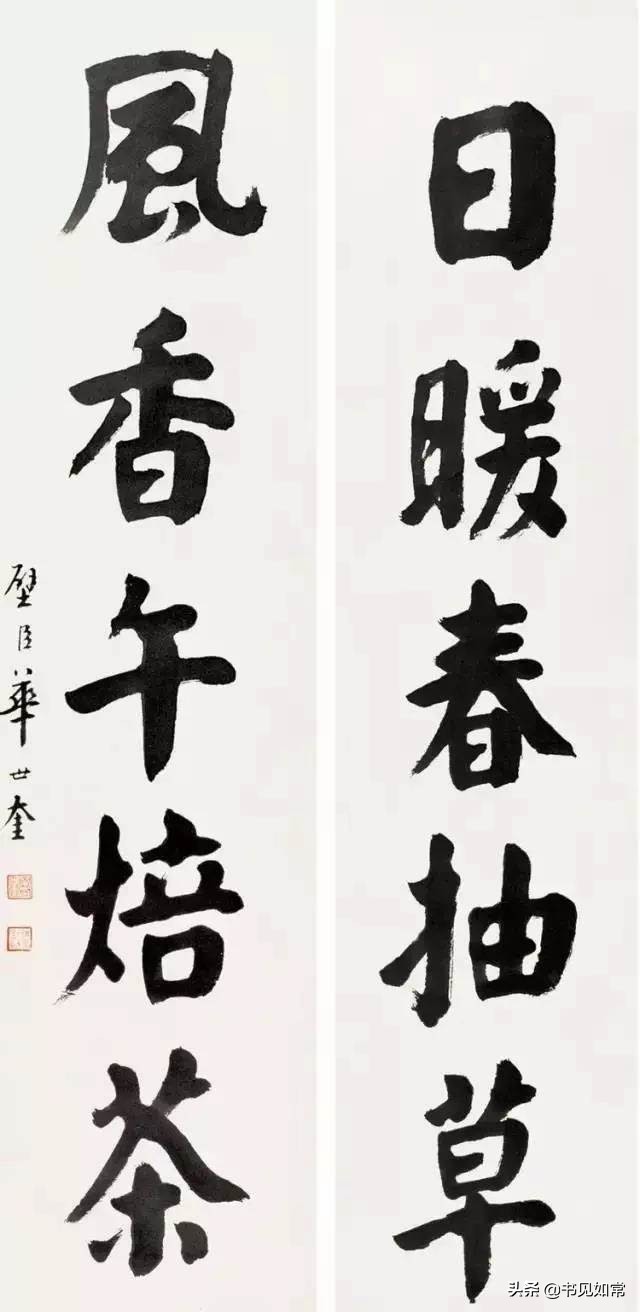 日暖春抽草
風香午焙茶
璧臣華世奎
头条 @书见如常